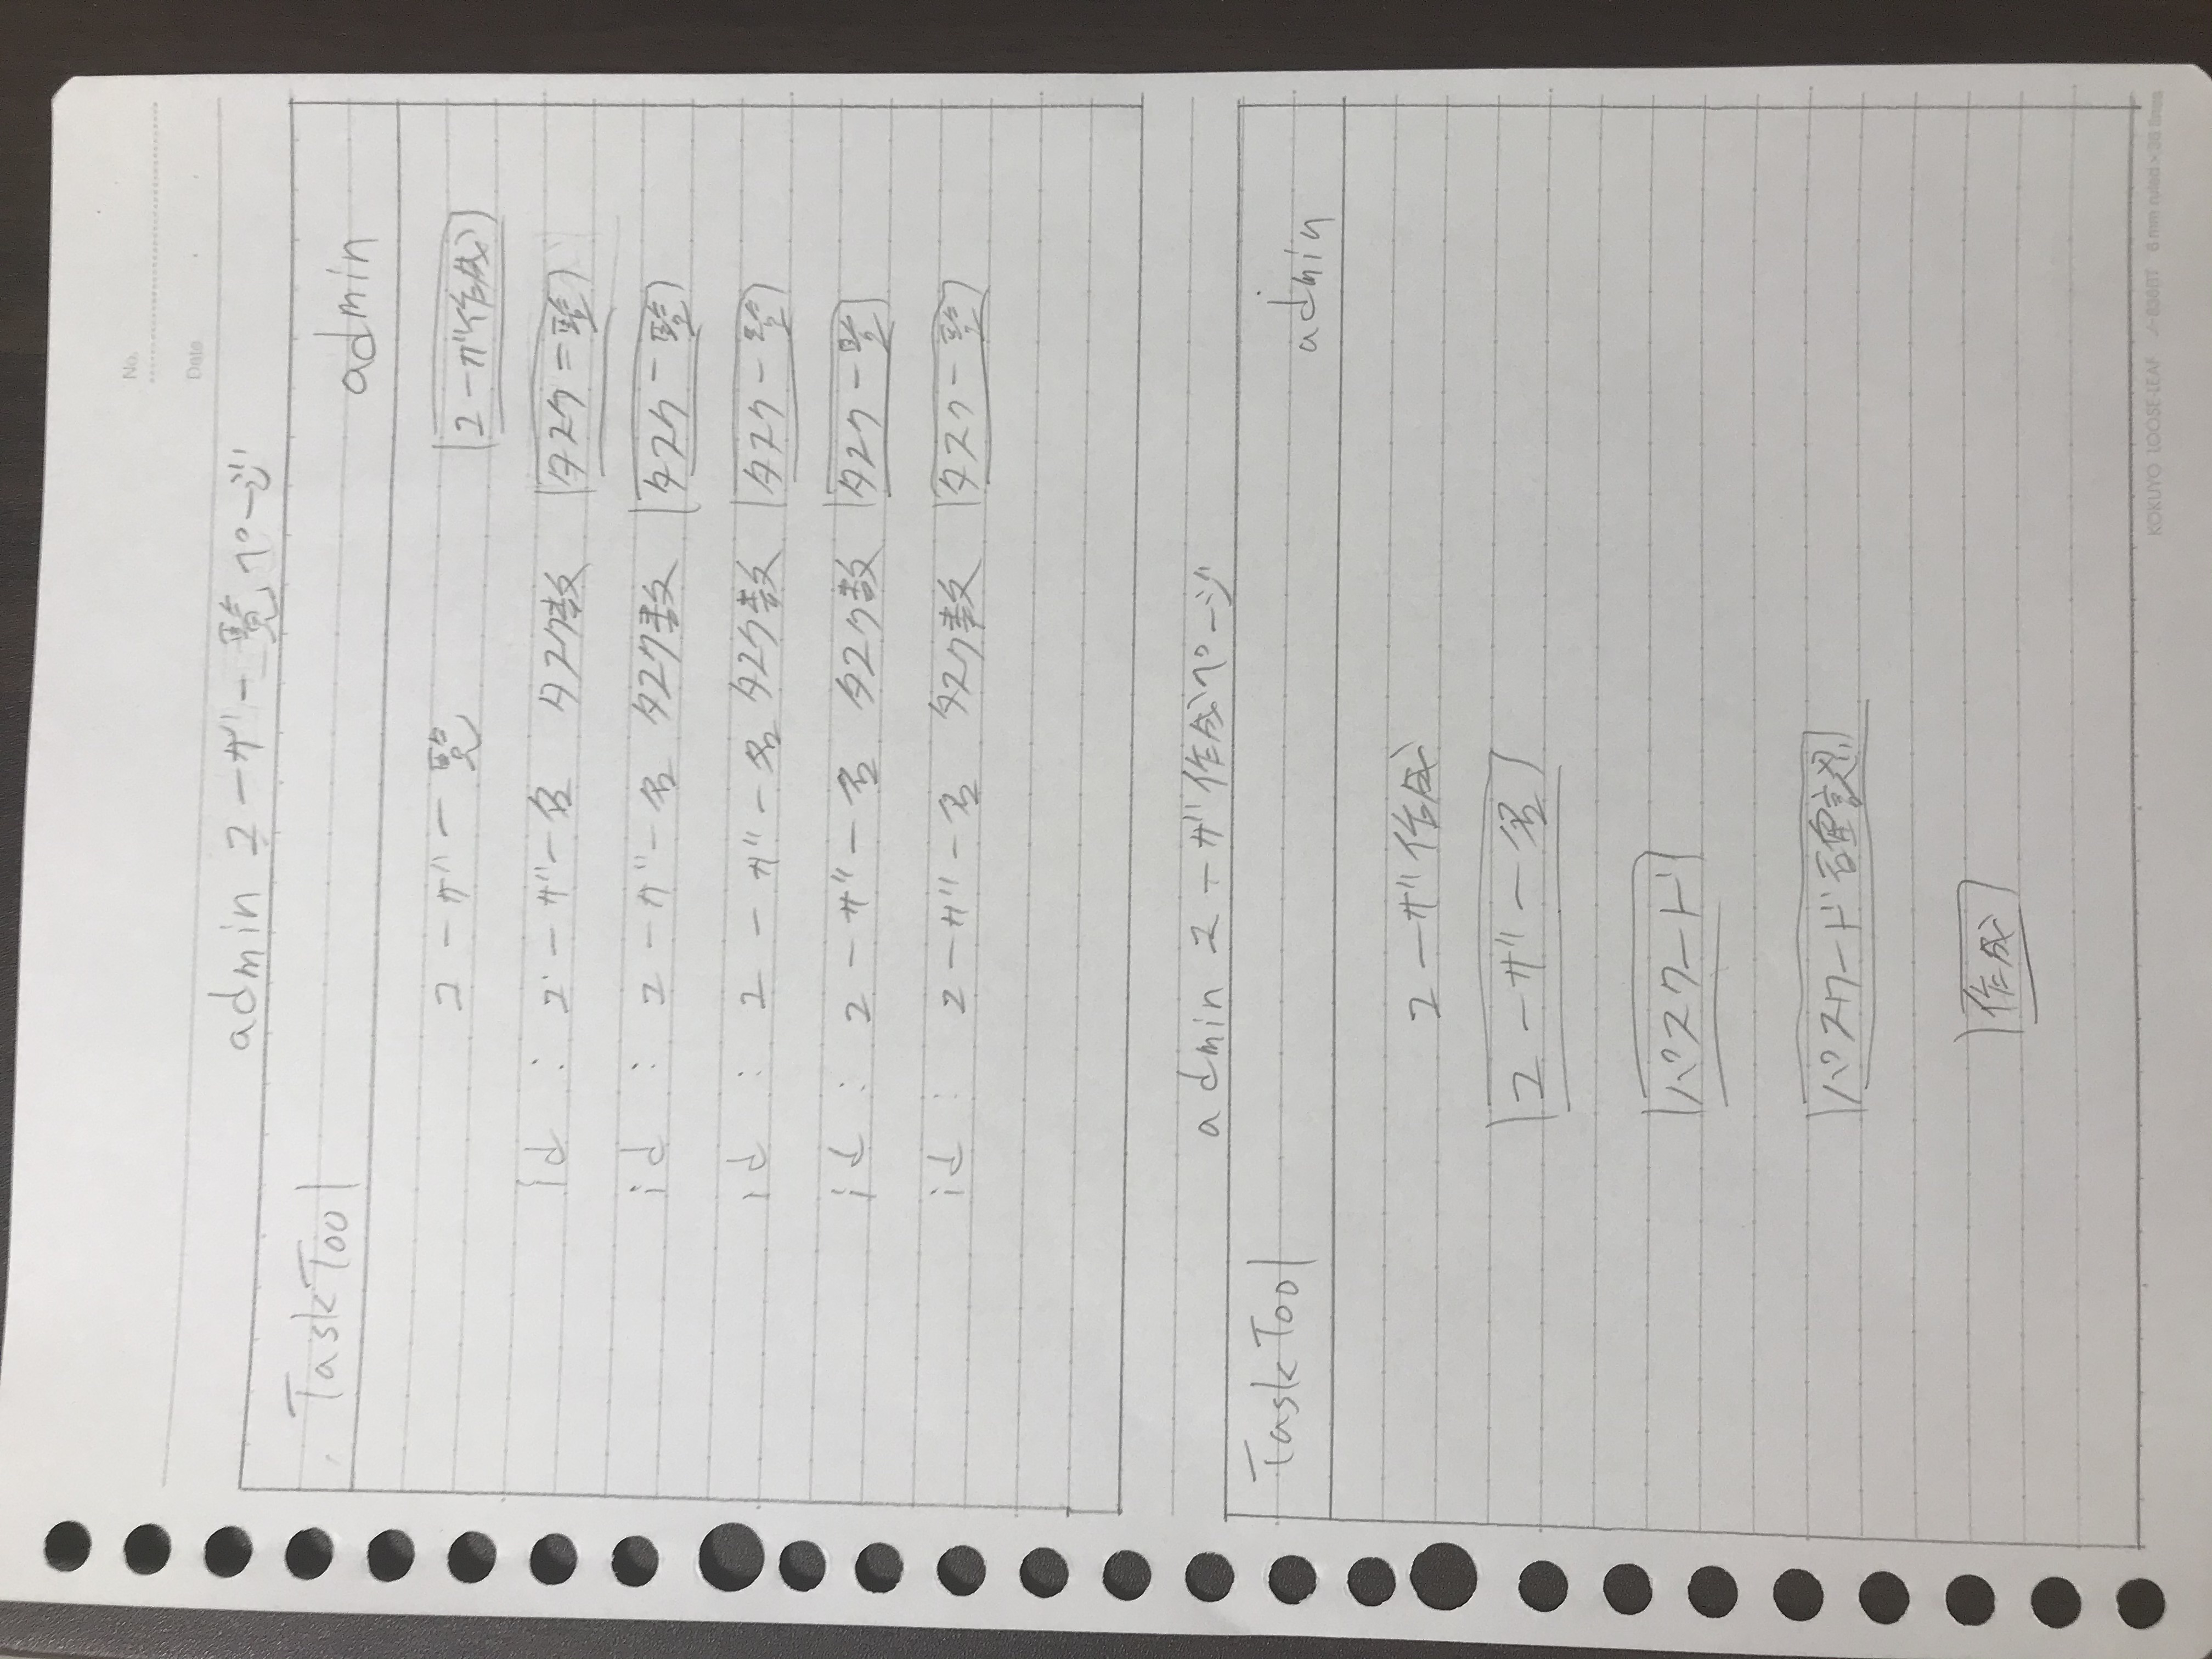 No.
Date
admin ユーザー一覧ページ
TaskTool admin
ユーザー一覧 ユーザ作成
id : ユーザー名 タスク数 タスク一覧
id : ユーザー名 タスク数 タスク一覧
id : ユーザー名 タスク数 タスク一覧
id : ユーザー名 タスク数 タスク一覧
id : ユーザー名 タスク数 タスク一覧
admin ユーザ作成ページ
TaskTool admin
ユーザ作成
ユーザー名
パスワード
パスワード確認
作成
KOKUYO LOOSE-LEAF ノ-836BT 6 mm ruled × 36 lines